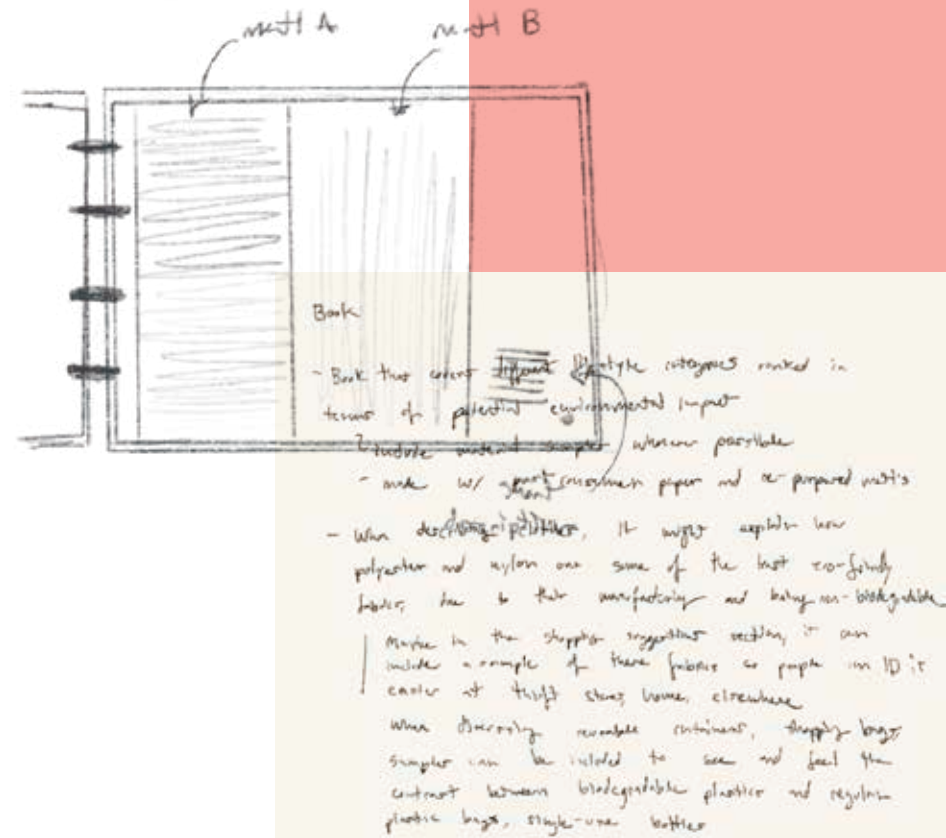 mat'l A
mat'l B
Book
- Book that covers different lifestyle categories ranked in
terms of potential environmental impact
include material samples whenever possible
- made w/ post consumer paper and re-purposed mat'l's
short
description
- When describing, it might explain how
polyester and nylon are some of the least eco-friendly
fabrics, due to their manufacturing and being non-biodegradable
Maybe in the shopping suggestions section, it can
include a sample of these fabrics so people can ID it
easier at thift stores, home, elsewhere
When discussing reusable containers, shopping bags,
samples can be included to see and feel the
contrast between biodegradable plastics and regular
plastic bags, single-use bottles